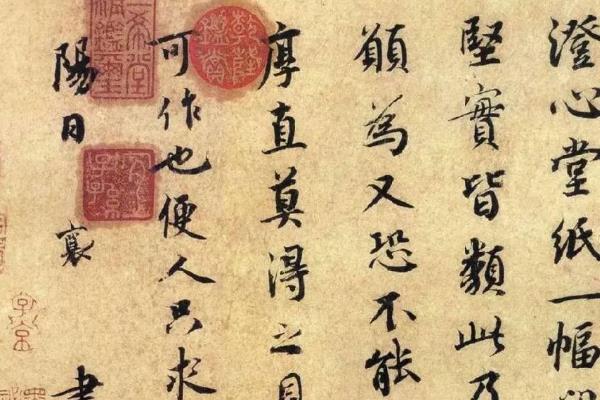 澄心堂紙一幅
堅實皆類此乃
願為又恐不能
厚直莫得之見
可作也便人只求
陽日 襄 書